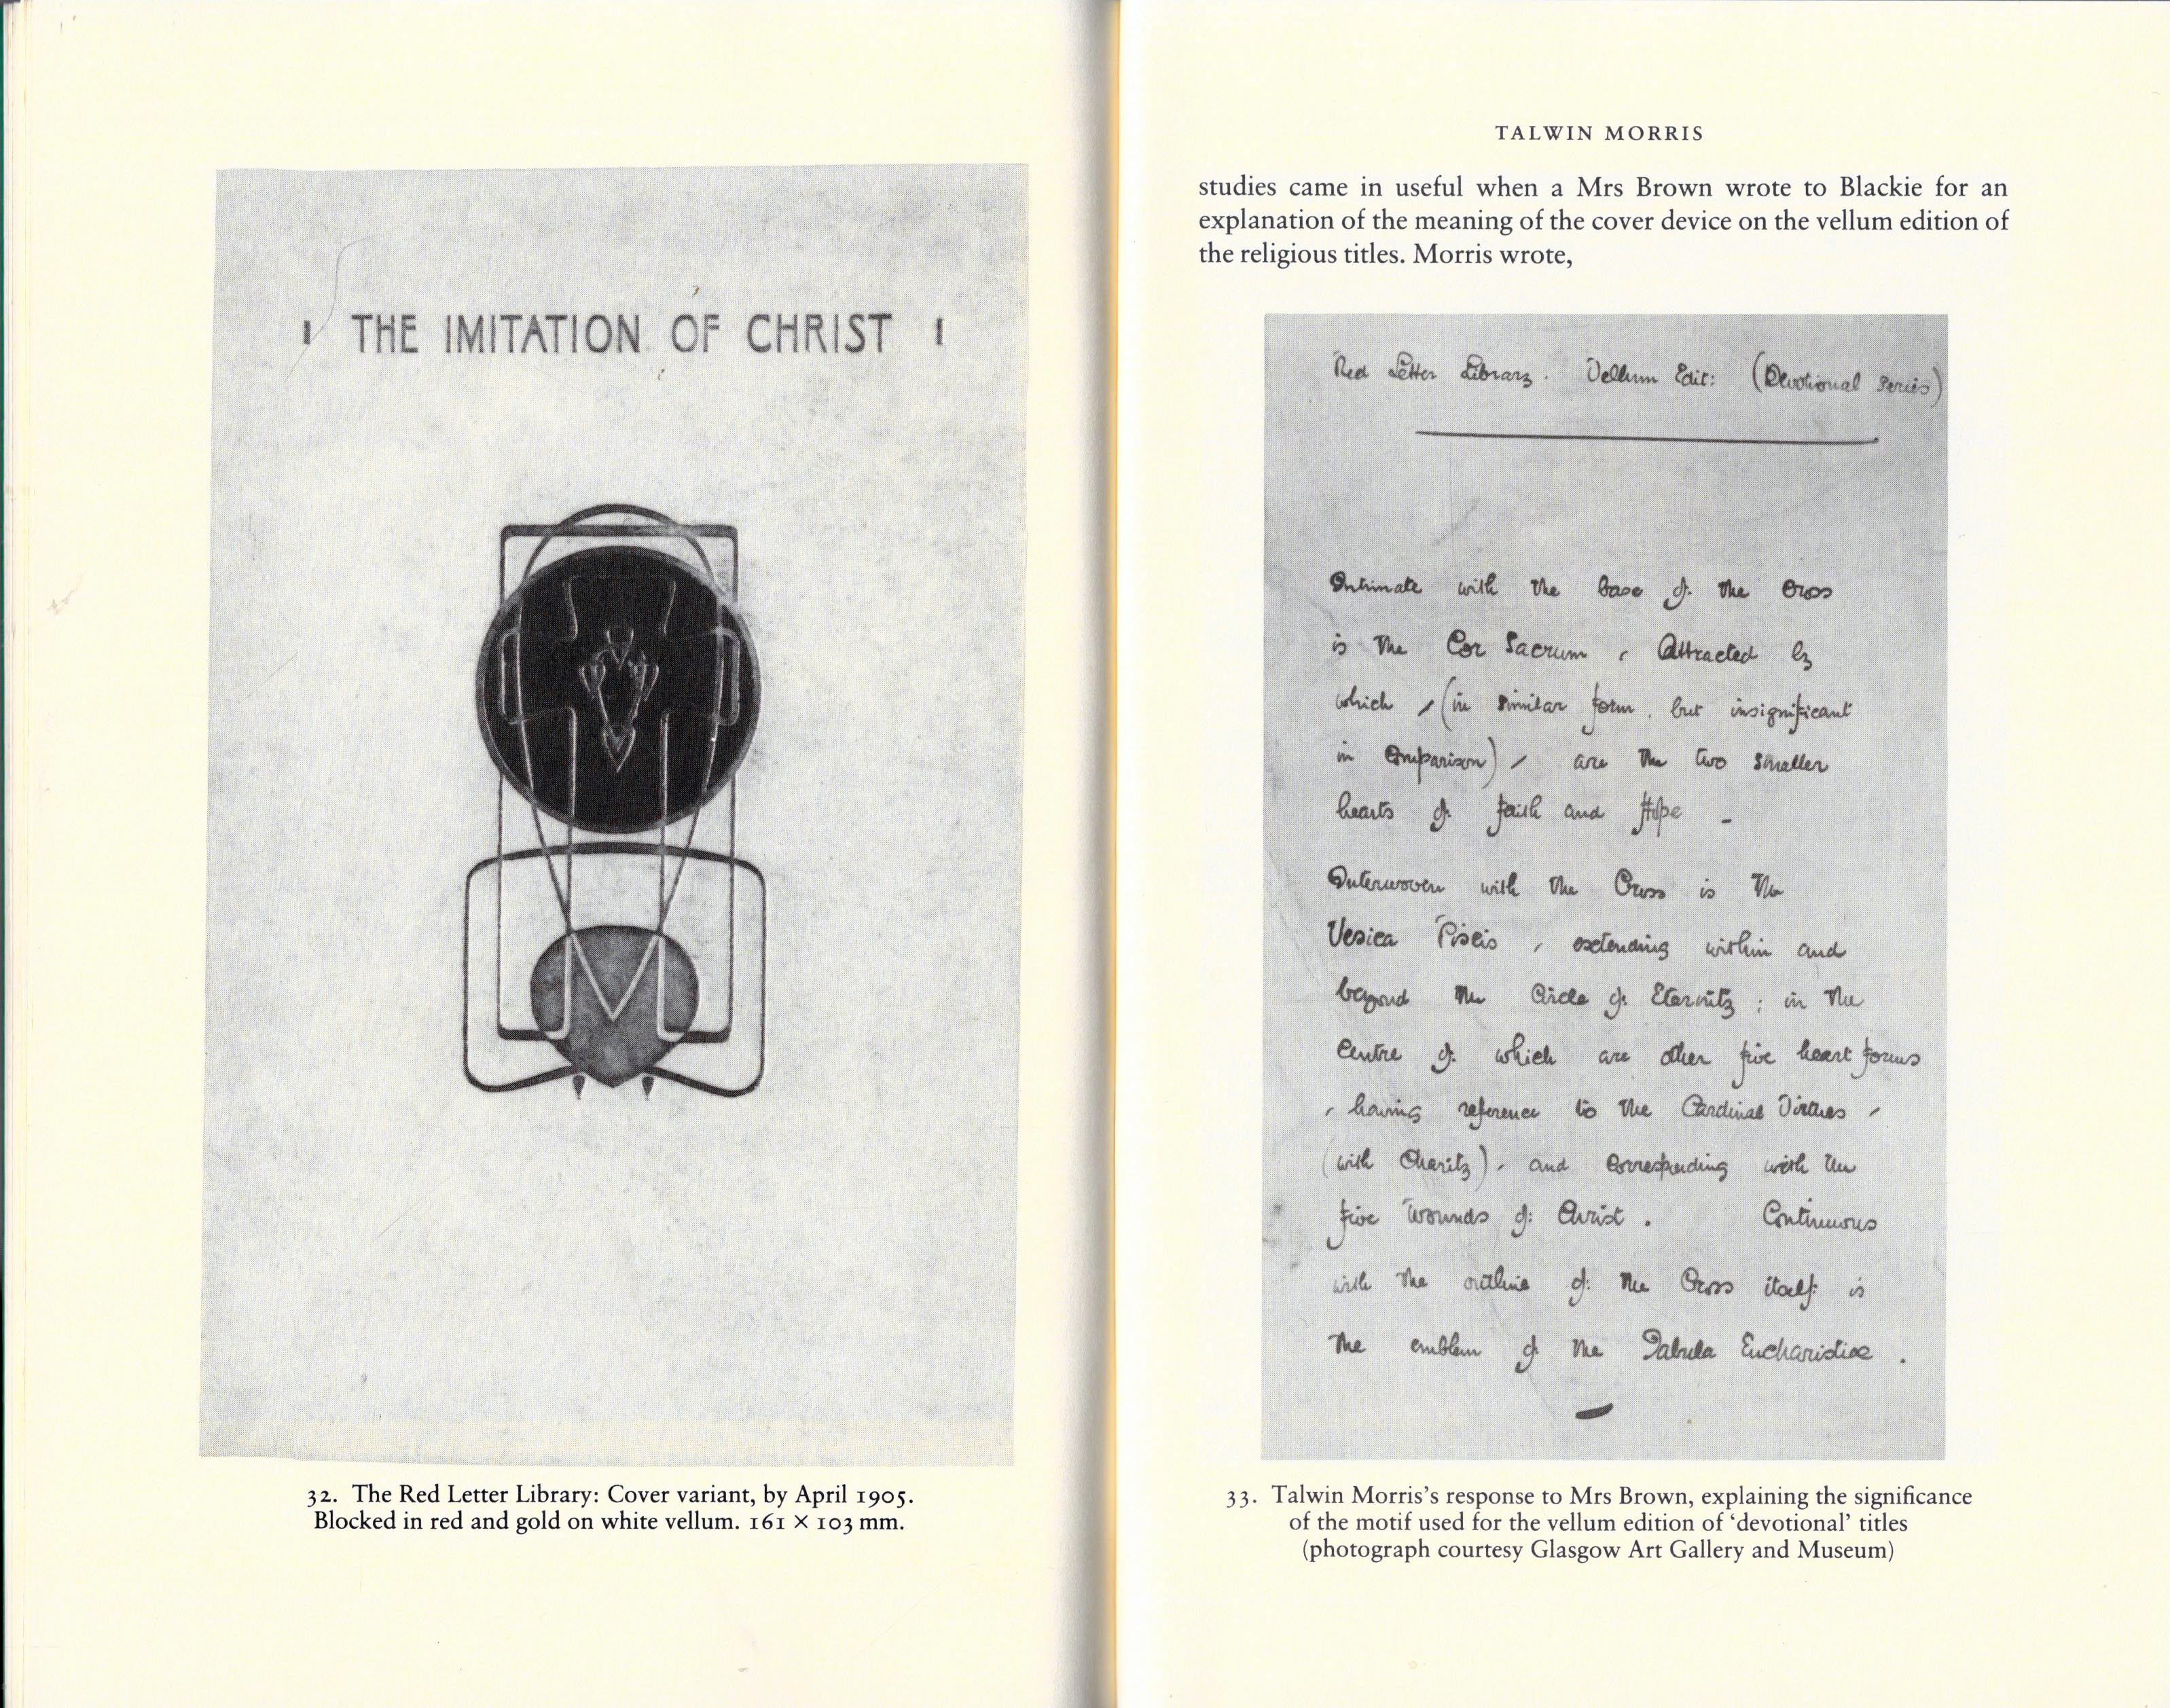 THE IMITATION OF CHRIST
32. The Red Letter Library: Cover variant, by April 1905.
Blocked in red and gold on white vellum. 161 × 103 mm.
TALWIN MORRIS
studies came in useful when a Mrs Brown wrote to Blackie for an
explanation of the meaning of the cover device on the vellum edition of
the religious titles. Morris wrote,
Red Letter Library. Vellum Edit: (Devotional Series)
Intimate with the base of the Cross
is the Cor Sacrum, Attracted by
which, (in similar form, but insignificant
in Comparison), are the two smaller
hearts of Faith and Hope –
Interwoven with the Cross is the
Vesica Piscis, extending within and
beyond the Circle of Eternity; in the
Centre of which are other five heart forms
, having reference to the Cardinal Virtues,
(with Charity), and Corresponding with the
five Wounds of Christ. Continuous
with the outline of the Cross itself is
the emblem of the Tabula Eucharistiae.
33. Talwin Morris's response to Mrs Brown, explaining the significance
of the motif used for the vellum edition of 'devotional' titles
(photograph courtesy Glasgow Art Gallery and Museum)